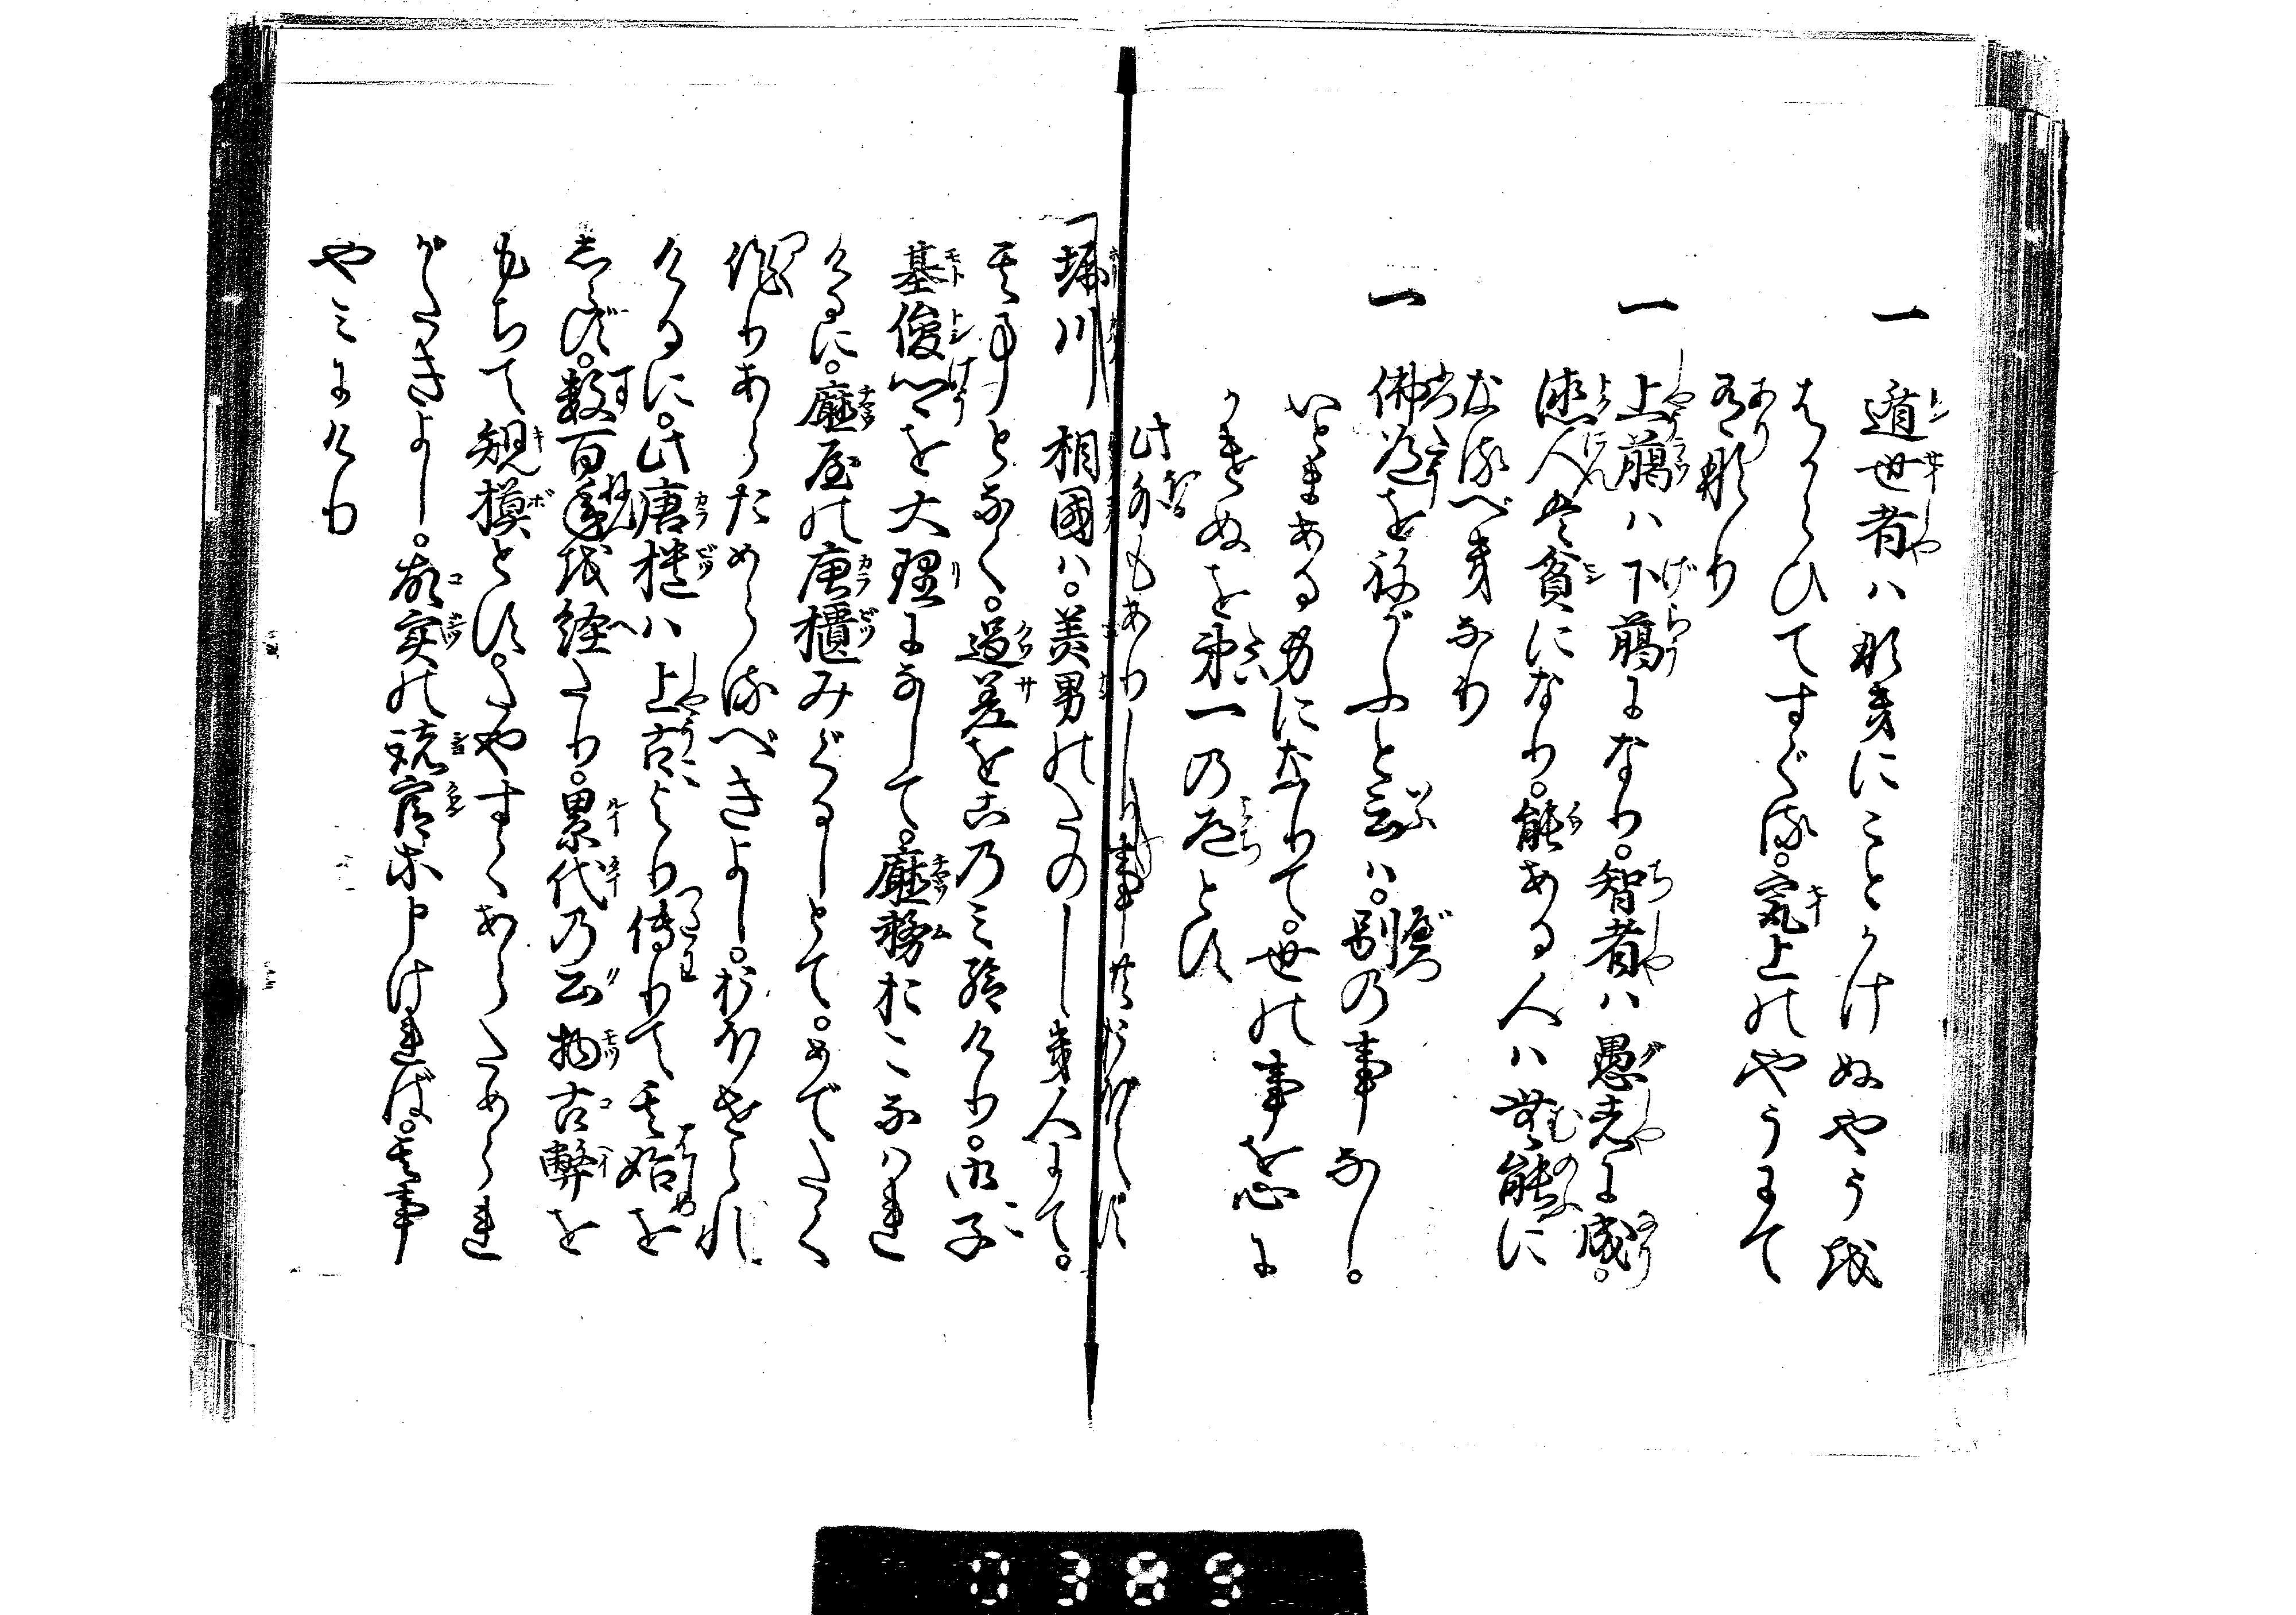 一　遁世者ハなきにことかけぬやうを
はからひてすぐる。最上のやうにて
有なり
一　上﨟ハ下﨟になり。智者ハ愚者に成。
徳人は貧になり。能ある人ハ無能に
なるべきなり
一　佛道をねがふと云ハ。別の事なし。
いとまある身になりて。世の事を心に
かけぬを第一の道とす
此外もありし事共おぼえず
一堀川相國ハ。美男のたのしき人にて。
其事となく。過差をこのミ給けり。御子
基俊卿を大理になして。廰務おこなハれ
けるに。廰屋の唐櫃みぐるしとて。めでたく
作りあらためらるべきよし。おほせられ
けるに。此唐櫃ハ上古より傳りて其始を
しらず。数百年を経たり。累代の公物古弊を
もちて規模とす。たやすくあらためられ
がたきよし。故実の諸官等申ければ。其事
やミにけり
0383